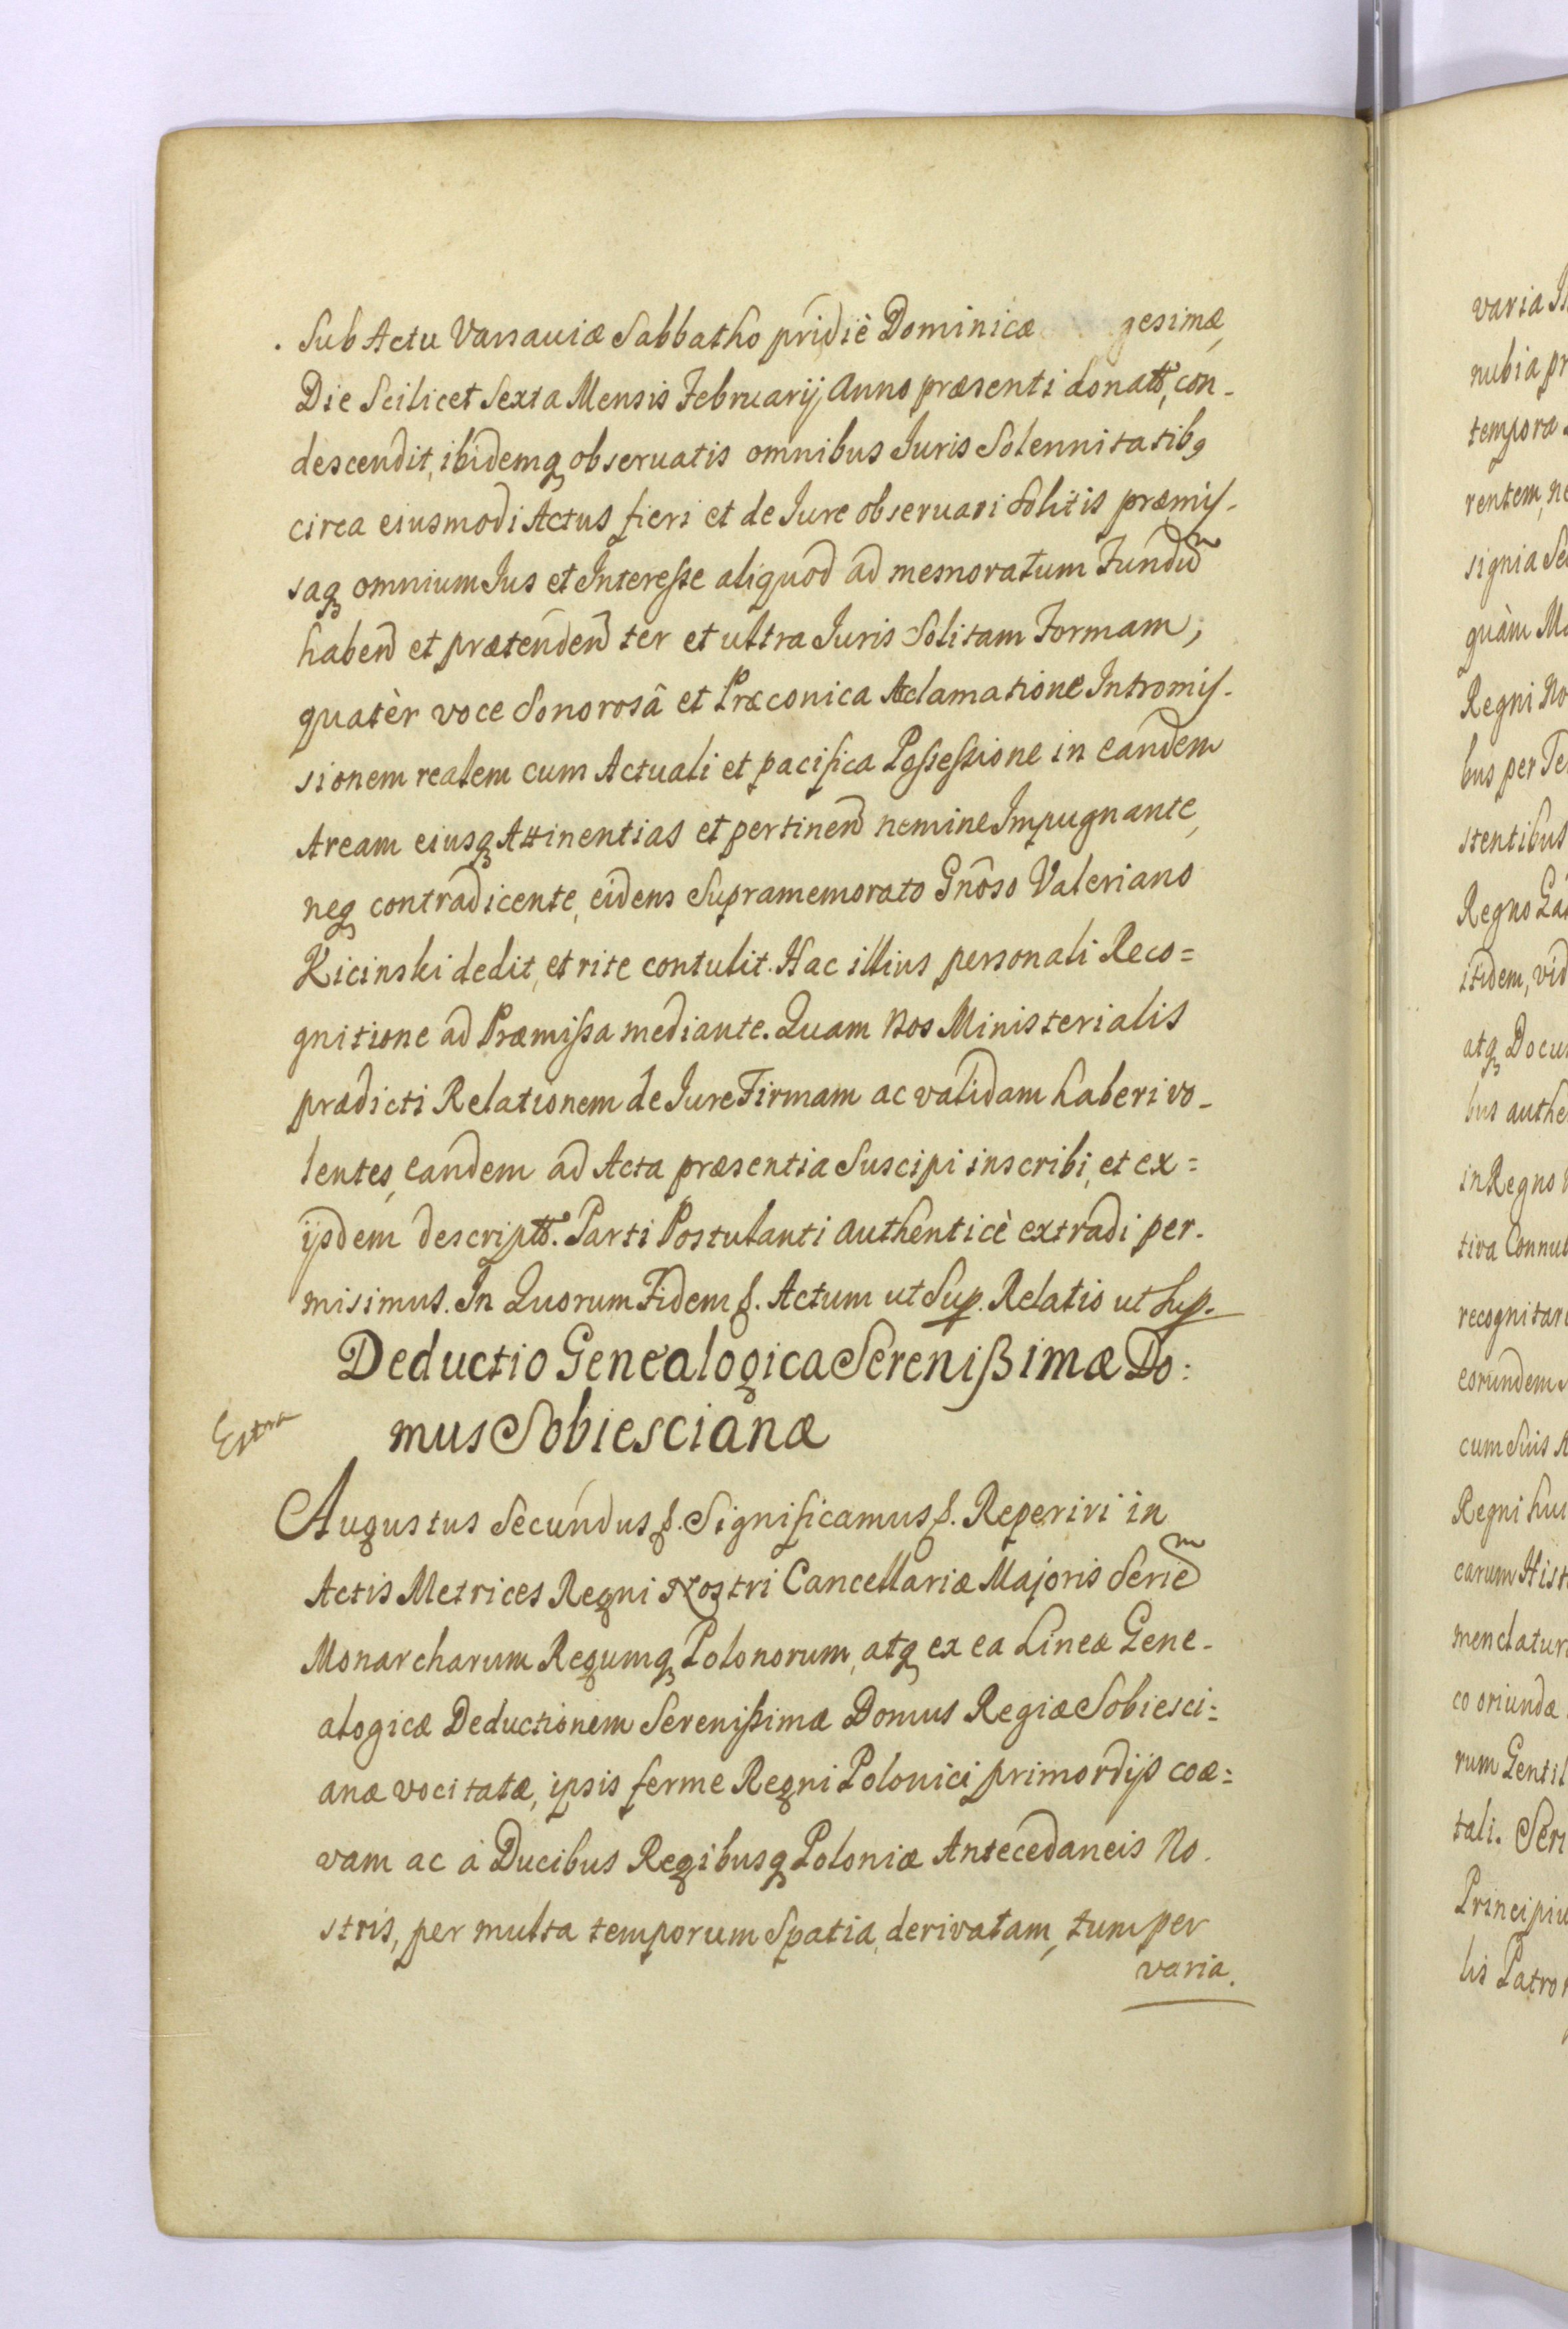 . Sub Actu Varsauiæ Sabbatho pridiè Dominicæ gesimæ,
Die Scilicet Sexta Mensis Februarij Anno præsenti donatt, con-
descendit, ibidemq obseruatis omnibus Juris Solennitatibq
circa eiusmodi Actus fieri et de Jure obseruari Solitis præmis-
saq omnium Jus et Interesse aliquod ad memoratum Fundũ
habend et prætendend ter et ultra Juris Solitam Formam,
quatèr voce Sonorosâ et Præconica Aclamatione Intromis-
sionem realem cum Actuali et pacifica Possessione in eandem
Aream eiusq Attinentias et pertinend nemine Impugnante,
neq contradicente, eidem Supramemorato Gnôso Valeriano
Kicinski dedit, et rite contulit. Hac illius personali Reco=
gnitione ad Præmissa mediante. Quam Nos Ministerialis
prædicti Relationem de Jure Firmam ac validam haberi vo-
lentes, eandem ad Acta præsentia Suscipi inscribi, et ex=
ijsdem descriptt. Parti Postulanti authenticè extradi per-
misimus. In Quorum Fidem &. Actum ut Sup. Relatio ut Sup.
Deductio Genealogica Sereniss imæ Do:
mus Sobiescianæ
Extra
Augustus Secundus &. Significamus &. Reperiri in
Actis Metrices Regni Nostri Cancellariæ Majoris Seriẽ
Monarcharum Regumq Polonorum, atq ex ea Lineæ Gene-
alogicæ Deductionem Serenissimæ Domus Regiæ Sobiesci=
anæ vocitatæ, ipsis ferme Regni Polonici primordijs coæ=
vam ac à Ducibus Regibusq Poloniæ Antecedaneis No-
stris, per multa temporum Spatia, derivatam, tum per
varia.
varia
nubia pr
tempora
rentem, ne
signia Se
quàm Ma
Regni No
bus per Te
stentibus
Regno Ga
itidem, vid
atq Docu
bus authe
in Regno
tiva Connub
recognitar
eorundem
cum Suis A
Regni hui
carum Hist
menclatur
co oriundæ
rum Gentil
tali. Ser
Principiu
lis Patro